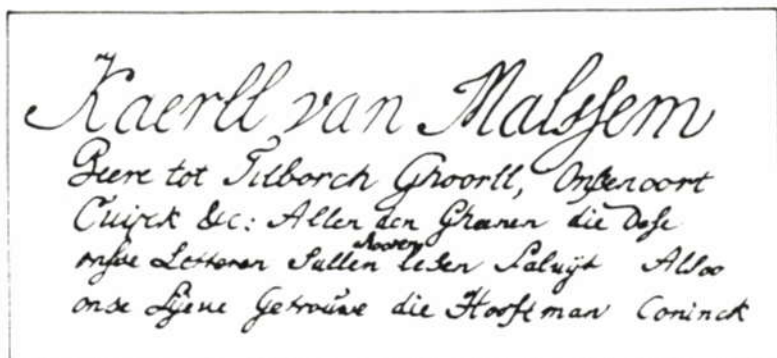 Kaerll van Malssem
Heere tot Tilborch Ghoorll, Onsenoort
Cuijck &c: Allen den Ghenen die Dese
onse Letteren Sullen hooren lesen Saluijt Alsoo
onse Lijeve Getrouwe die Hooftman Coninck